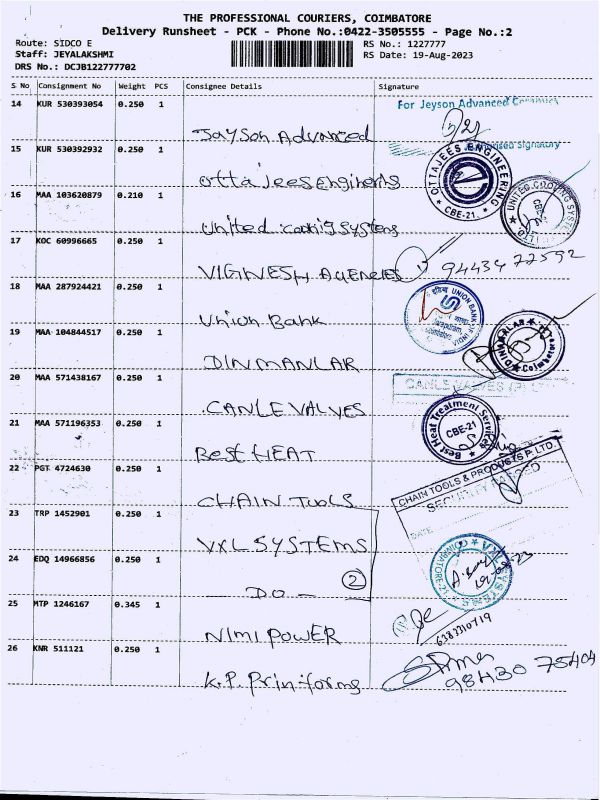 THE PROFESSIONAL COURIERS, COIMBATORE
Delivery Runsheet - PCK - Phone No.:0422-3505555 - Page No.:2
Route: SIDCO E
RS No.: 1227777
Staff: JEYALAKSHMI
RS Date: 19-Aug-2023
DRS No.: DCJB122777702
S No Consignment No Weight PCS Consignee Details Signature
14 KUR 530393054 0.250 1
For Jeyson Advanced Ceramics
Jayson Advanced
Signatory
15 KUR 530392932 0.250 1
OTTAJEES ENGINEERING
CBE-21.
Ottajees Enginering
16 MAA 103620879 0.210 1
UNITED COOLING SYSTEMS
United cooling systems
17 KOC 60996665 0.250 1
VIGNESH AGENCIES
94434 72592
18 MAA 287924421 0.250 1
UNION BANK OF INDIA
Union Bank
19 MAA 104844517 0.250 1
DINAMALAR
Coimbatore
DINMANLAR
20 MAA 571438167 0.250 1
CANLE VALVES
CANLE VALVES
21 MAA 571196353 0.250 1
Best Heat Treatment Services
CBE-21
Best HEAT
22 PGT 4724630 0.250 1
CHAIN TOOLS & PRODUCTS P. LTD.
DATE
CHAIN TOOLS
23 TRP 1452901 0.250 1
VXL SYSTEMS
24 EDQ 14966856 0.250 1
2
- DO -
25 MTP 1246167 0.345 1
6383310719
NIMI POWER
26 KNR 511121 0.250 1
98430 75404
K.P. Priniforms